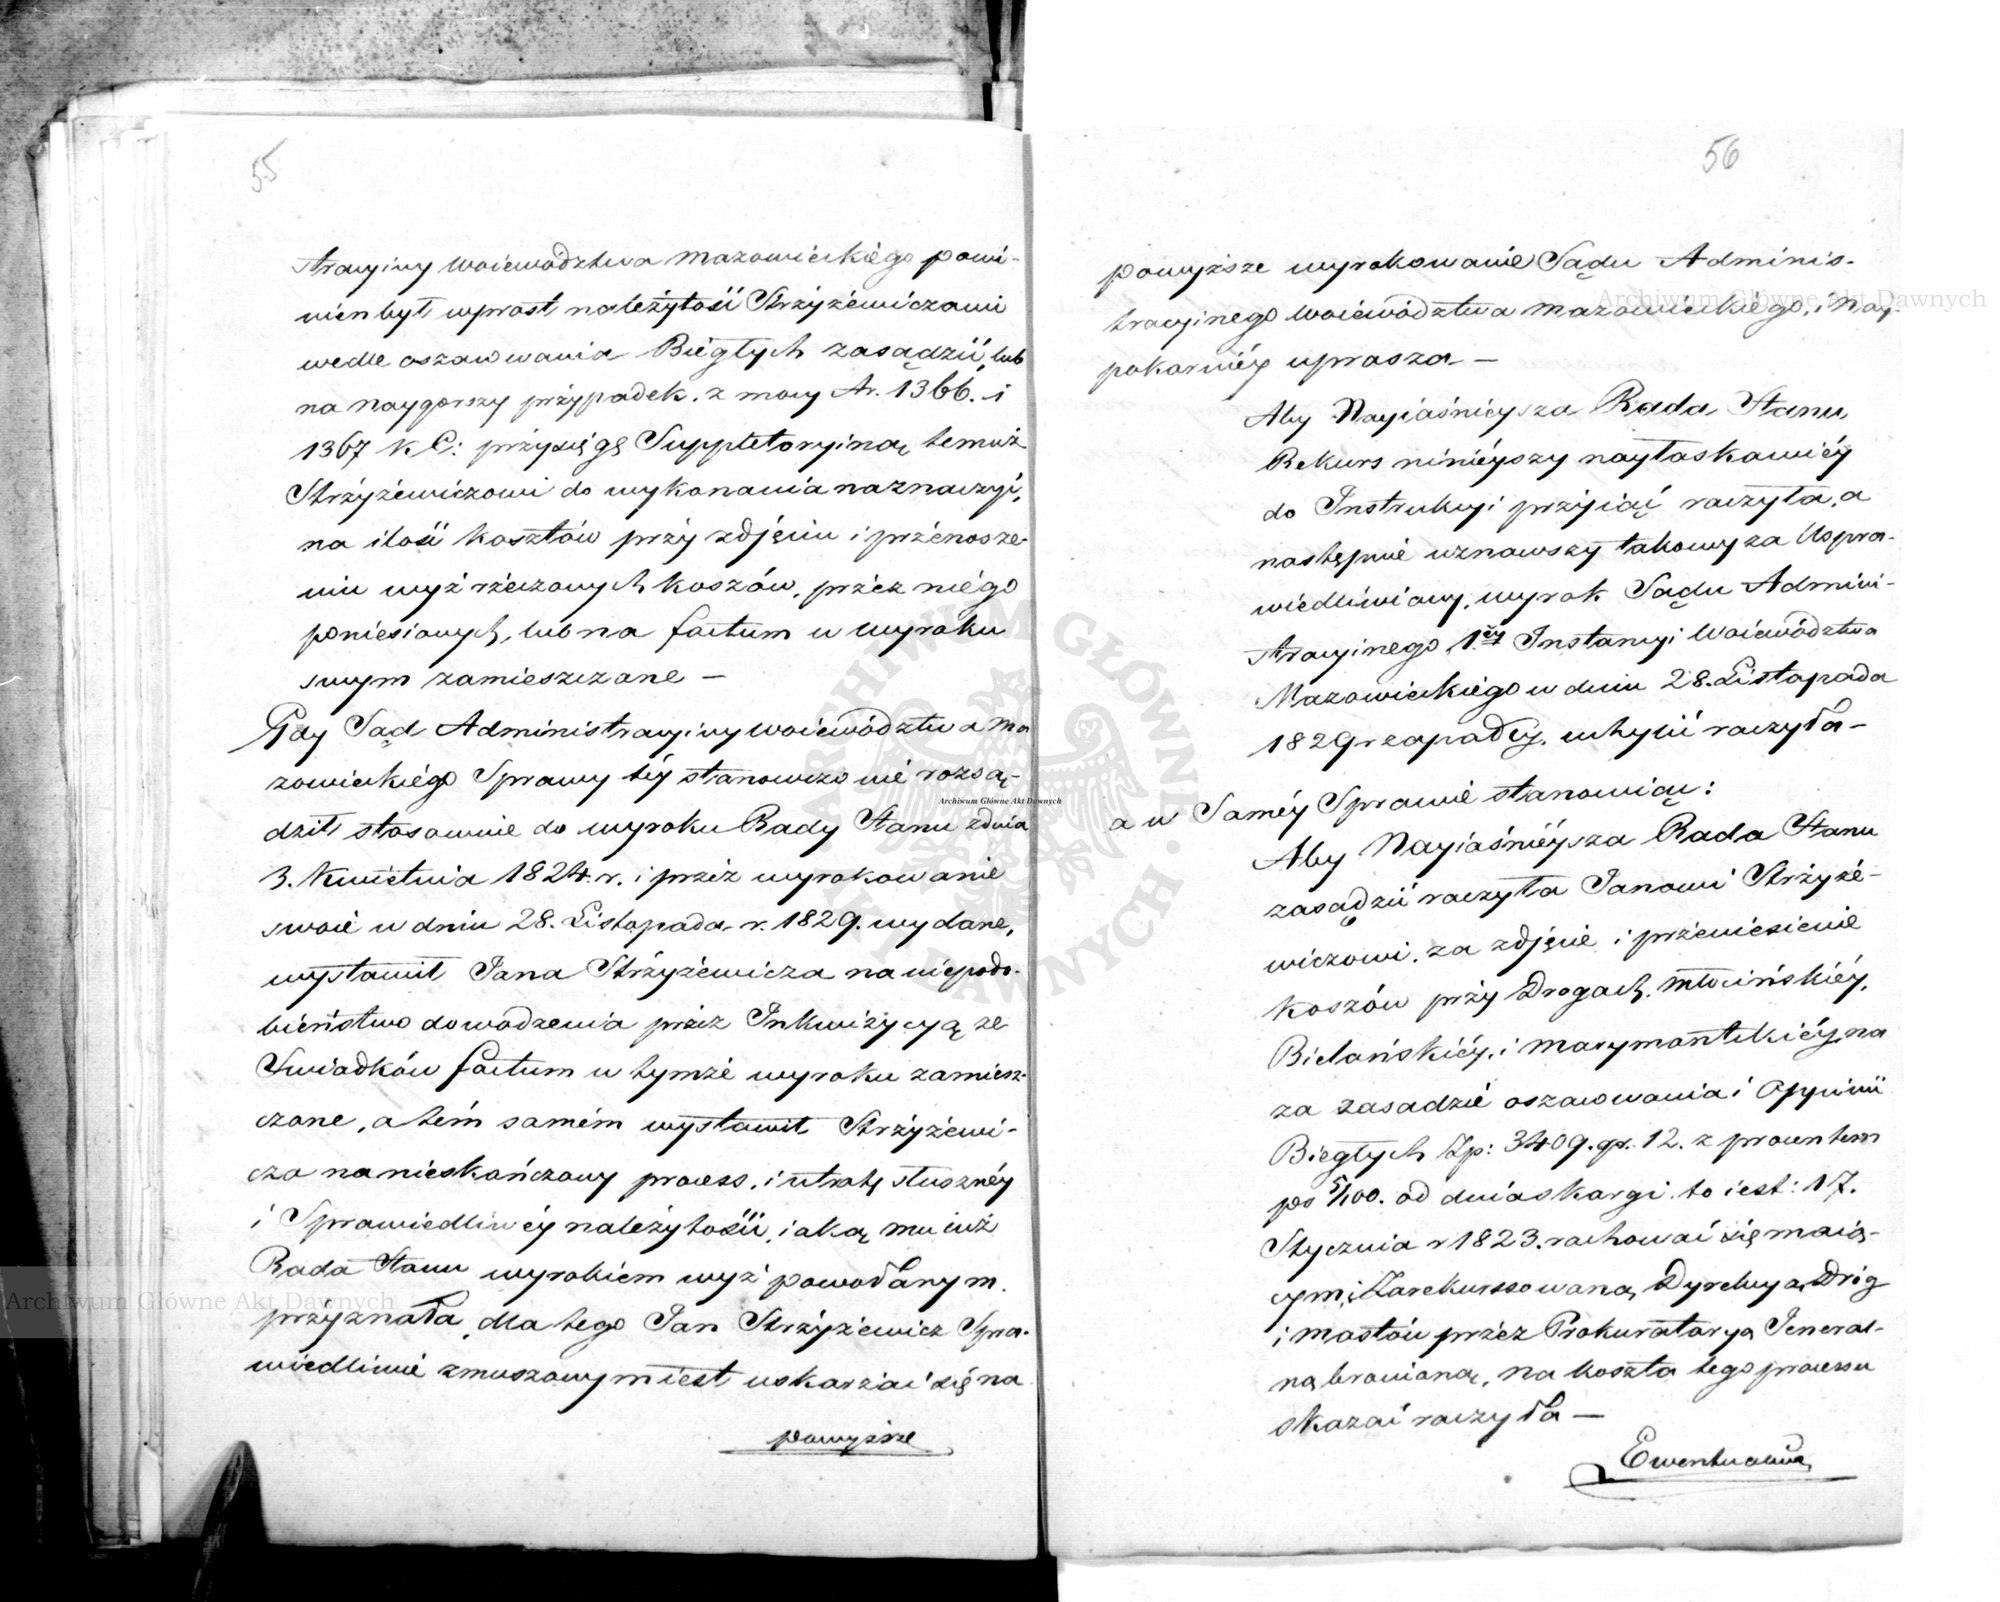 55
stracyiny Woiewodztwa Mazowieckiégo powi-
nien był wprost należytość Strżyżewiczowi
wedle oszacowania Biégłych zasądzić, lub
na naygorszy przypadek, z mocy Ar. 1366. i
1367 K C: przysięgę Suppletoryiną temuż
Strżyżewiczowi do wykonania naznaczyć,
na ilość kosztów przy zdjęciu i przénosze-
niu wyż rzeczonych koszów, przez niégo
poniesionych, lub na factum w wyroku
swym zamieszczone —
Gdy Sąd Administracyiny Woiewództwa Ma
zowieckiégo Sprawy téy stanowczo nié rozsą-
dził stosownie do wyroku Rady Stanu z dnia
3. Kwietnia 1824. r. i przez wyrokowanie
swoié w dniu 28. Listopada r. 1829. wydane,
wystawił Jana Strżyżewicza na niepodo-
bieństwo dowodzenia przez Inkwizycyą ze
Swiadków factum w tymże wyroku zamiesz-
czone, a tém samém wystawił Strżyżewi-
cza na nieskończony process, i utratę słusznéy
i Sprawiedliwéy należytości, iaką mu iuż
Rada Stanu wyrokiem wyż powołanym
przyznała, dla tego Jan Strżyżewicz Spra-
wiedliwie zmuszonym iest uskarżać się na
powyższe
56
powyższe wyrokowanie Sądu Adminis-
tracyinego Woiéwództwa Mazowieckiégo, i Nay-
pokorniéy uprasza —
Aby Nayiaśnieysza Rada Stanu
Rekurs niniéyszy nayłaskawiéy
do Instrukcyi przyiąć raczyła, a
następnie uznawszy takowy za Uspra-
wiedliwiony, wyrok Sądu Admini-
stracyinego 1éy Instancyi Woiewództwa
Mazowieckiégo w dniu 28. Listopada
1829 r zapadły, uchylić raczyła —
a w Saméy Sprawie stanowiąc:
Aby Nayiaśniéysza Rada Stanu
zasądzić raczyła Janowi Strżyżé-
wiczowi, za zdjęcie i przeniésienie
Koszów przy Drogach, Młocińskiéy,
Bielańskiéy, i Marymontckiéy, na
za zasadzié oszacowania i Oppinii
Biegłych Zp: 3409. gr. 12. z procentem
po 5/100. od dnia skargi to iest: 17.
Stycznia r 1823. rachować się maią-
cym, i Zarekurssowaną Dyrekcyą Dróg
i Mostów przez Prokuratoryą Jeneral-
ną bronioną, na koszta tego processu
skazać raczyła —
Ewentualnie
Archiwum Główne Akt Dawnych
Archiwum Główne Akt Dawnych
Archiwum Główne Akt Dawnych
ARCHIWUM GŁÓWNE AKT DAWNYCH